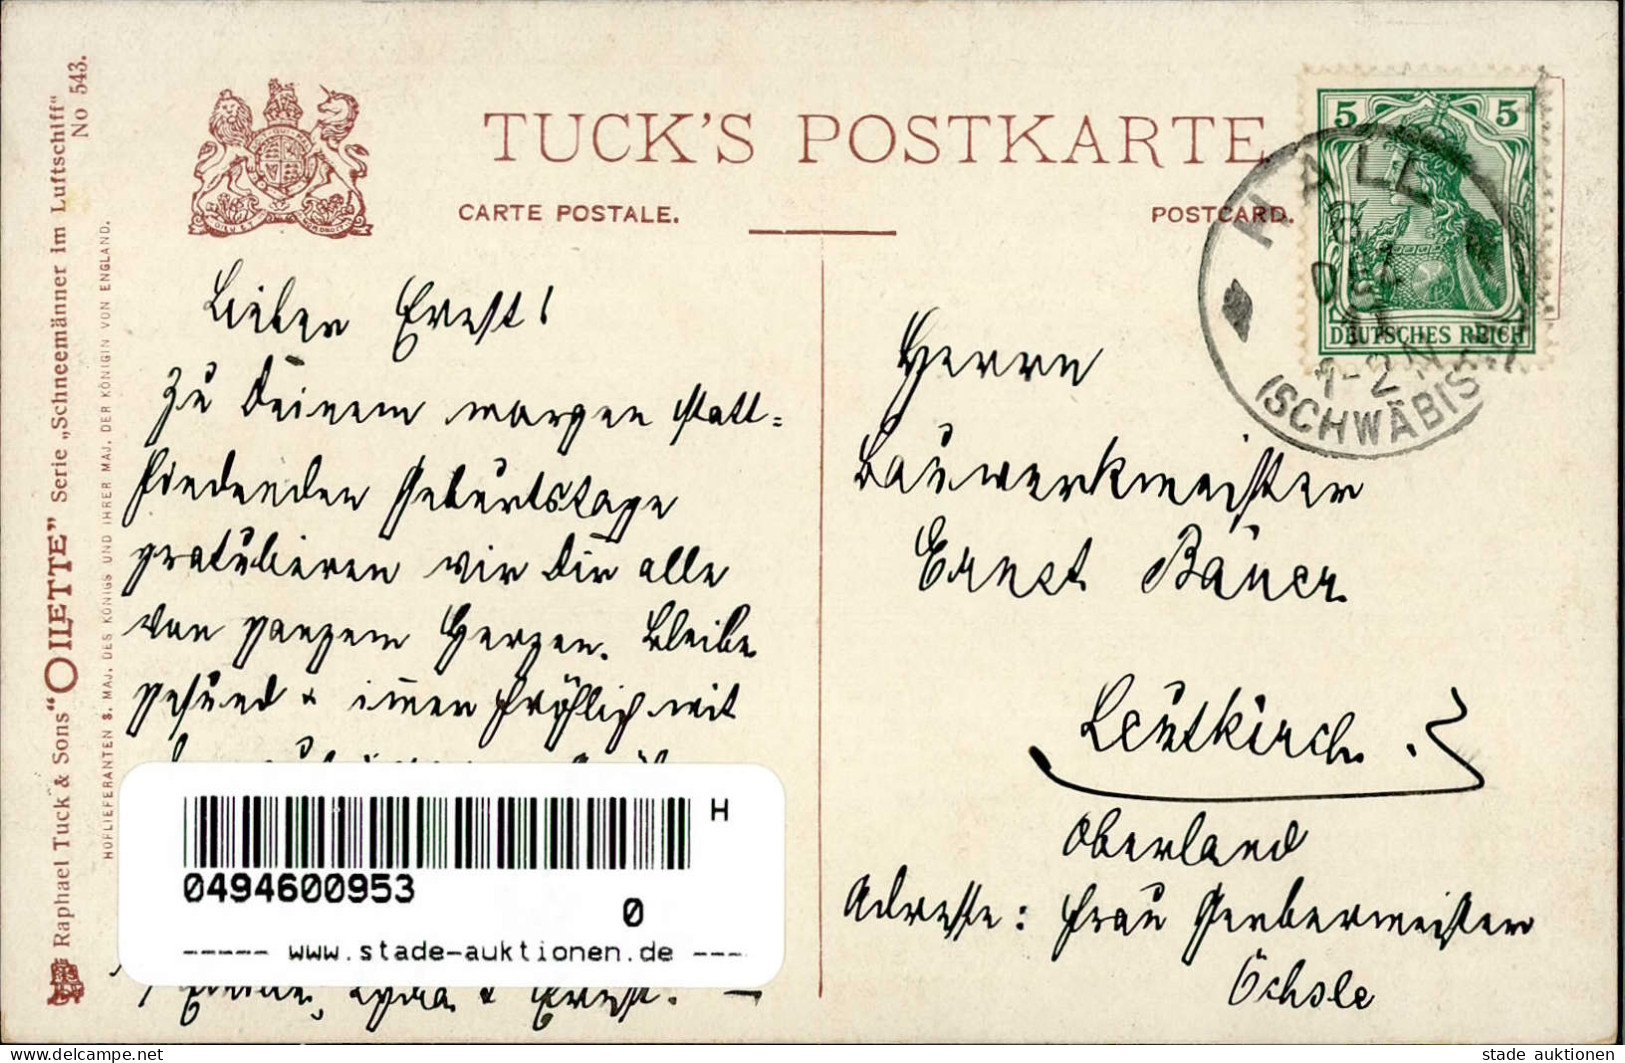 Raphael Tuck & Sons “OILETTE” Serie „Schneemänner im Luftschiff“
No 543.
HOFLIEFERANTEN S. MAJ. DES KÖNIGS UND IHRER MAJ. DER KÖNIGIN VON ENGLAND.
TUCK'S POSTKARTE
CARTE POSTALE.
POSTCARD.
5 5
DEUTSCHES REICH
HALL
1-2 N
(SCHWÄBIS
Lieber Ernst!
Zu Deinem morgen statt=
findenden Geburtstage
gratulieren wir Dir alle
von ganzem Herzen. Bleibe
gesund & immer fröhlich mit
Emilie, Lydia & Ernst. —
Herrn
Bauwerkmeister
Ernst Bauer
Leutkirch.
Oberland
Adresse: Frau Gerbermeister
Öchsle
H
0494600953
0
----- www.stade-auktionen.de ----
delcampe.net
stade auktionen